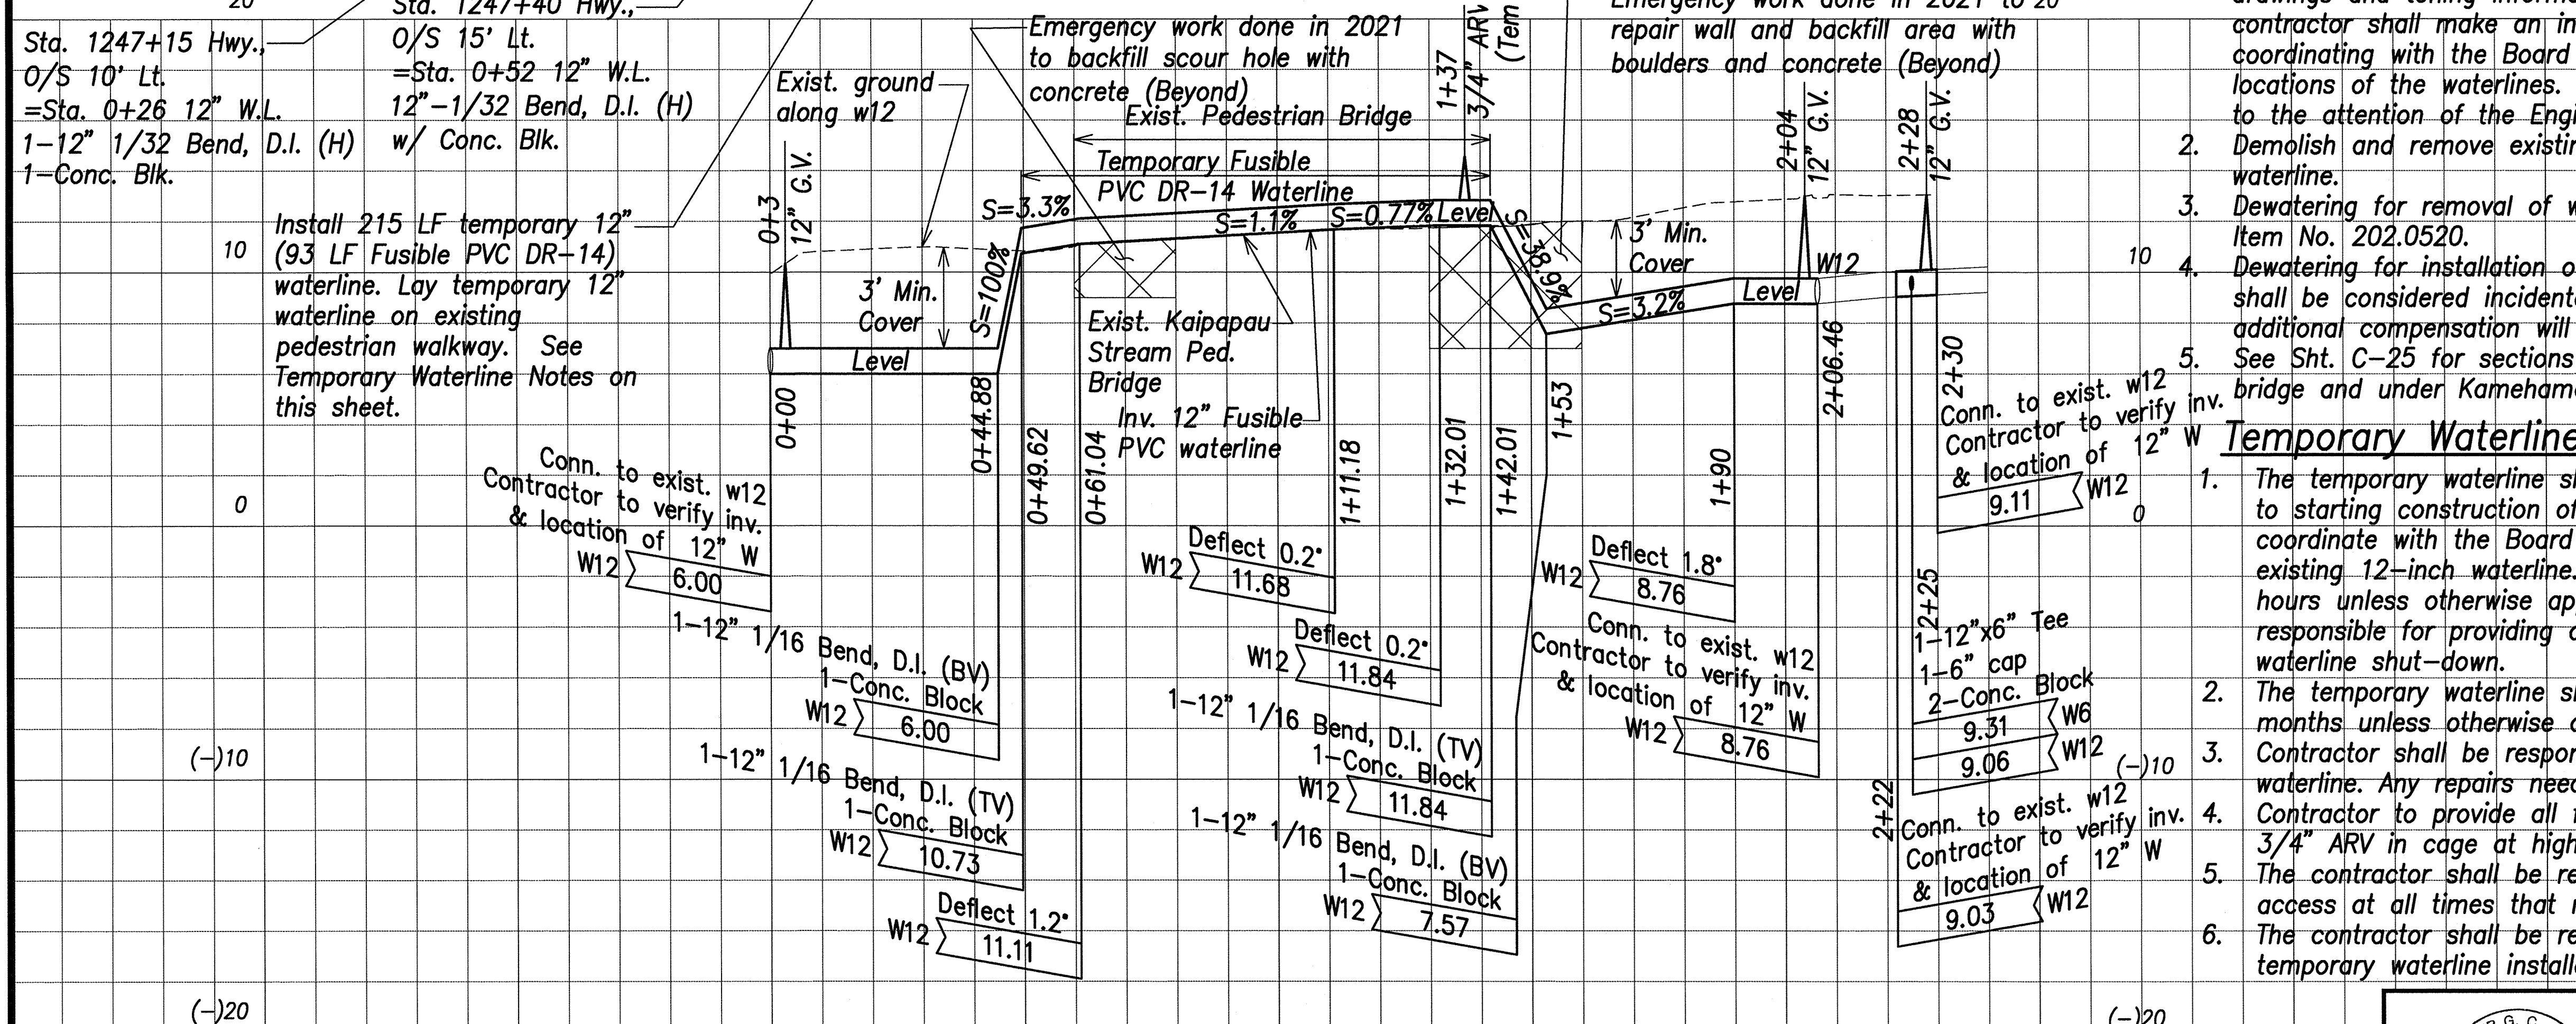 20
Sta. 1247+40 Hwy.,
O/S 15' Lt.
=Sta. 0+52 12" W.L.
12"-1/32 Bend, D.I. (H)
w/ Conc. Blk.
Sta. 1247+15 Hwy.,
O/S 10' Lt.
=Sta. 0+26 12" W.L.
1-12" 1/32 Bend, D.I. (H)
1-Conc. Blk.
Install 215 LF temporary 12"
(93 LF Fusible PVC DR-14)
waterline. Lay temporary 12"
waterline on existing
pedestrian walkway. See
Temporary Waterline Notes on
this sheet.
10
0
(-)10
(-)20
Exist. ground
along w12
Emergency work done in 2021
to backfill scour hole with
concrete (Beyond)
Exist. Pedestrian Bridge
Temporary Fusible
PVC DR-14 Waterline
1+37
3/4" ARV
(Tem
Emergency work done in 2021 to
repair wall and backfill area with
boulders and concrete (Beyond)
20
0+3
12" G.V.
2+04
12" G.V.
2+28
12" G.V.
S=3.3%
S=1.1%
S=0.77%
Level
S=38.9%
S=100%
3' Min.
Cover
Level
3' Min.
Cover
S=3.2%
Level
W12
10
Exist. Kaipapau
Stream Ped.
Bridge
Inv. 12" Fusible
PVC waterline
0+00
0+44.88
0+49.62
0+61.04
1+11.18
1+32.01
1+42.01
1+53
1+90
2+06.46
2+30
2+25
2+22
Conn. to exist. w12
Contractor to verify inv.
& location of 12" W
W12
6.00
1-12" 1/16 Bend, D.I. (BV)
1-Conc. Block
W12
6.00
1-12" 1/16 Bend, D.I. (TV)
1-Conc. Block
W12
10.73
Deflect 1.2°
W12
11.11
Deflect 0.2°
W12
11.68
Deflect 0.2°
W12
11.84
1-12" 1/16 Bend, D.I. (TV)
1-Conc. Block
W12
11.84
1-12" 1/16 Bend, D.I. (BV)
1-Conc. Block
W12
7.57
Deflect 1.8°
W12
8.76
Conn. to exist. w12
Contractor to verify inv.
& location of 12" W
W12
8.76
Conn. to exist. w12
Contractor to verify inv.
& location of 12" W
9.11
W12
0
1-12"x6" Tee
1-6" cap
2-Conc. Block
9.31
W6
9.06
W12
(-)10
Conn. to exist. w12
Contractor to verify inv.
& location of 12" W
9.03
W12
(-)20
contractor shall make an in
coordinating with the Board
locations of the waterlines.
to the attention of the Engi
2. Demolish and remove existin
waterline.
3. Dewatering for removal of w
Item No. 202.0520.
4. Dewatering for installation o
shall be considered incident
additional compensation will
5. See Sht. C-25 for sections
bridge and under Kameham
Temporary Waterline
1. The temporary waterline s
to starting construction of
coordinate with the Board
existing 12-inch waterline.
hours unless otherwise ap
responsible for providing
waterline shut-down.
2. The temporary waterline s
months unless otherwise
3. Contractor shall be respon
waterline. Any repairs need
4. Contractor to provide all
3/4" ARV in cage at high
5. The contractor shall be re
access at all times that
6. The contractor shall be re
temporary waterline install